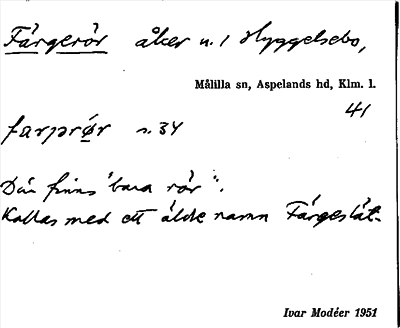 Fårgerör åker n. 1 Hyggelsebo,
Målilla sn, Aspelands hd, Klm. l.
41
s. 34
Där finns "bara rör".
Kallas med ett äldre namn Fårgeslåt.
Ivar Modéer 1951